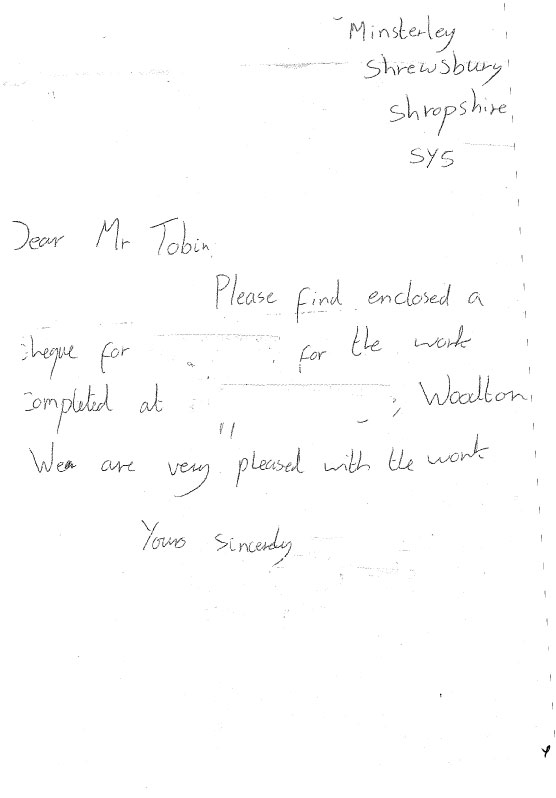 Minsterley
Shrewsbury
Shropshire
SY5
Dear Mr Tobin
Please find enclosed a
cheque for for the work
completed at , Woolton
We are very pleased with the work
Yours Sincerely